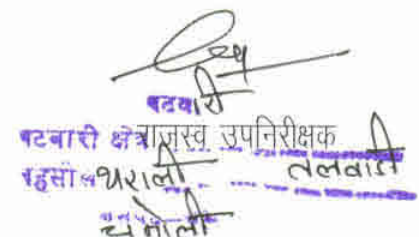 पटवारी
पटवारी क्षेत्र राजस्व उपनिरीक्षक तलवाडी
तहसील थराली
जनपद चमोली